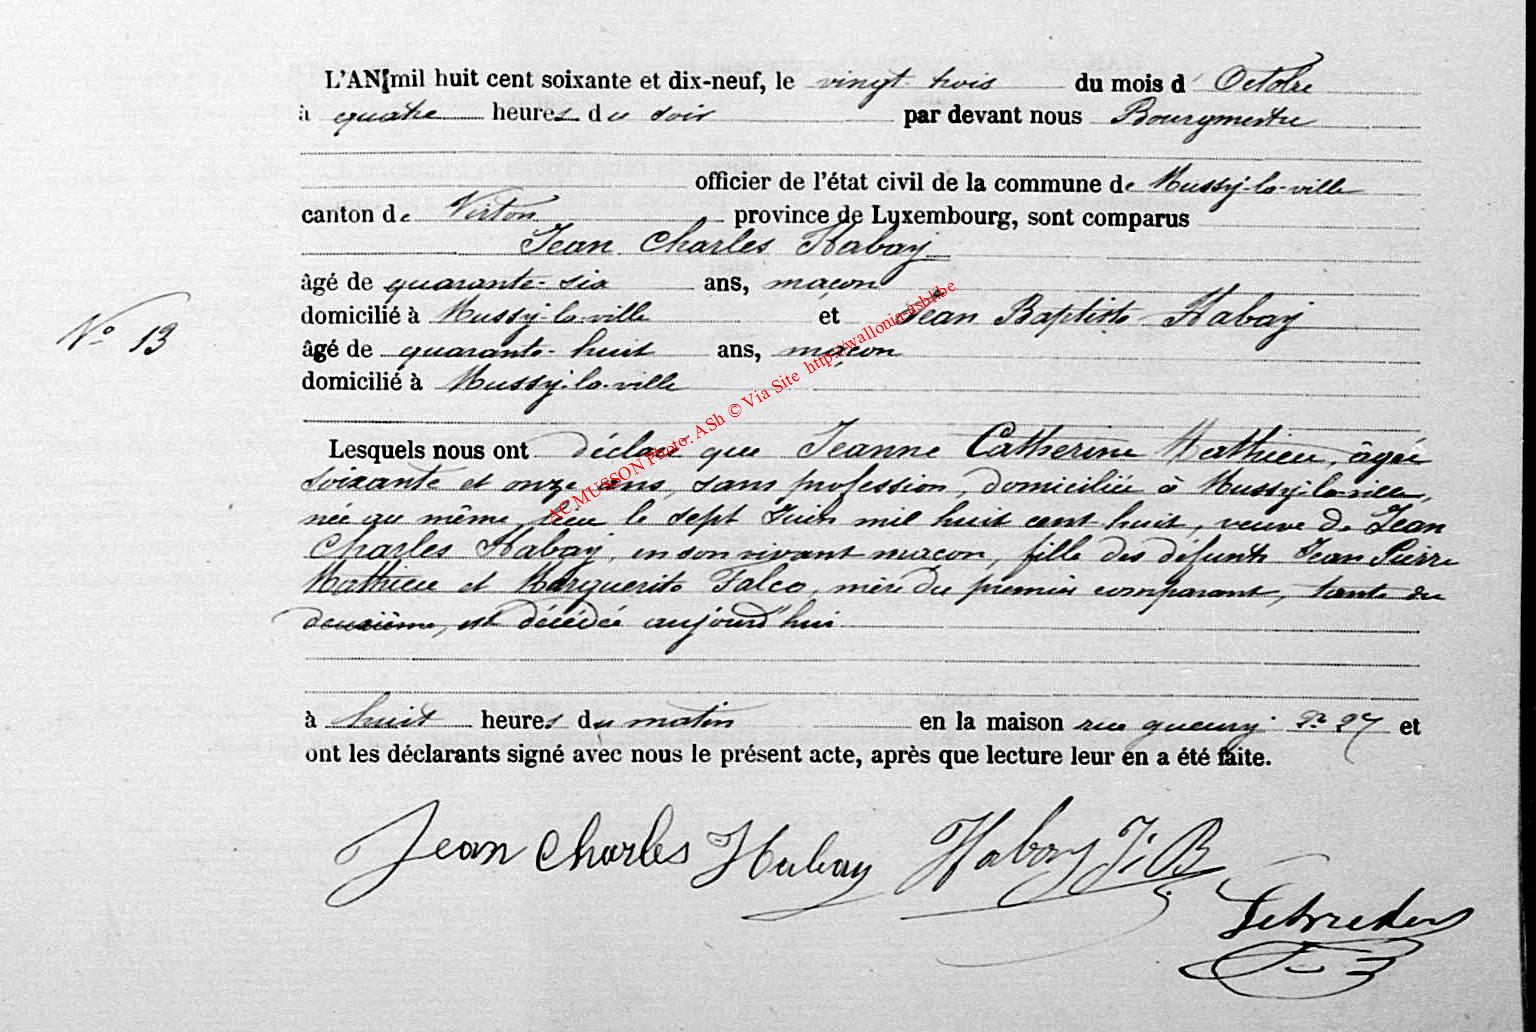 L'AN mil huit cent soixante et dix-neuf, le vingt trois du mois d'Octobre
à quatre heures du soir par devant nous Bourgmestre
officier de l'état civil de la commune de Mussy-la-ville
canton de Virton province de Luxembourg, sont comparus
Jean Charles Habay
âgé de quarante-six ans, maçon
domicilié à Mussy-la-ville et Jean Baptiste Habay
N° 13
âgé de quarante-huit ans, maçon
domicilié à Mussy-la-ville
AC MUSSON Photo: ASh © Via Site http://wallonia-asbl.be
Lesquels nous ont déclaré que Jeanne Catherine Mathieu, âgée
soixante et onze ans, sans profession, domiciliée à Mussy-la-ville,
née au même lieu le sept Juin mil huit cent huit, veuve de Jean
Charles Habay, en son vivant maçon, fille des défunts Jean Pierre
Mathieu et Marguerite Falco, mère du premier comparant, tante du
deuxième, est décédée aujourd'hui
à huit heures du matin en la maison rue n° 27 et
ont les déclarants signé avec nous le présent acte, après que lecture leur en a été faite.
Jean Charles Habay Habay J. B